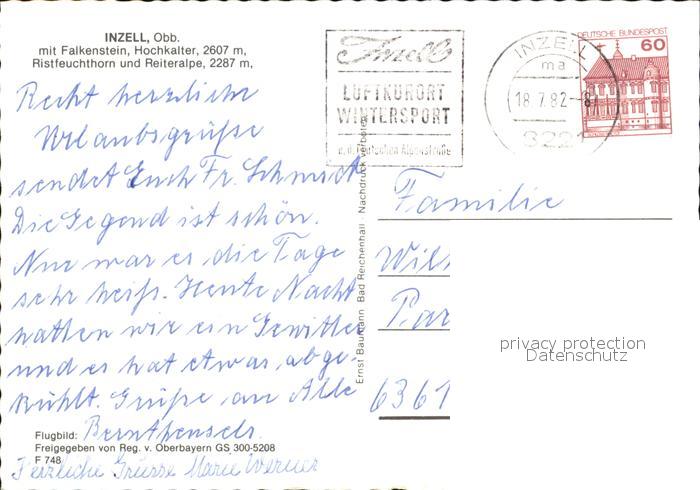 INZELL, Obb.
mit Falkenstein, Hochkalter, 2607 m,
Ristfeuchthorn und Reiteralpe, 2287 m,
Recht herzliche
Urlaubsgrüße
sendet Euch Fr. Schmidt
Die Gegend ist schön.
Nur war es die Tage
sehr heiß. Heute Nacht
hatten wir ein Gewitter
und es hat etwas abge-
kühlt. Grüße an Alle
Flugbild:
Freigegeben von Reg. v. Oberbayern GS 300-5208
F 748
Herzliche Grüsse Marie Werner
Ernst Baumann Bad Reichenhall - Nachdruck verboten
Inzell
LUFTKURORT
WINTERSPORT
a. d. Deutschen Alpenstraße
INZELL
ma
18.7.82-8
8221
DEUTSCHE BUNDESPOST
60
Familie
Wil
Par
6361
privacy protection
Datenschutz